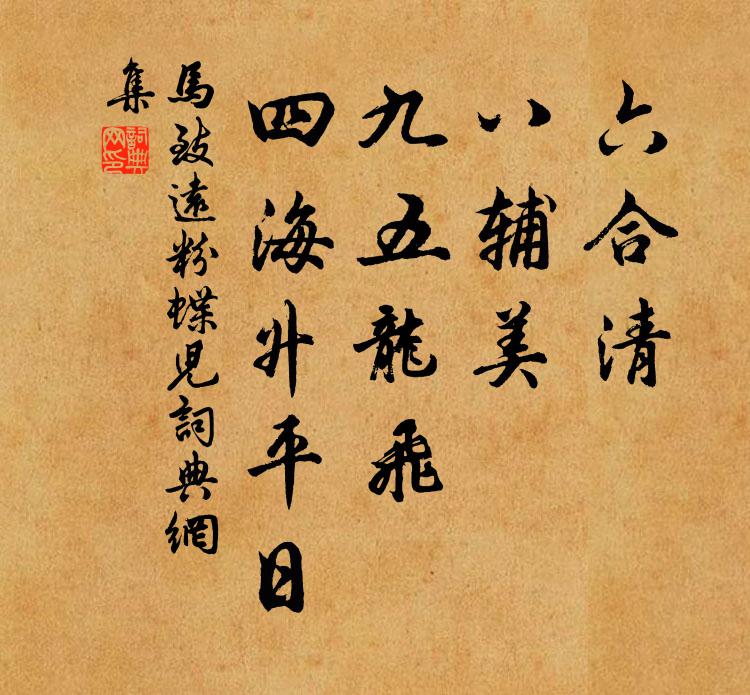 六合清
八辅美
九五龍飛
四海升平日
馬致遠粉蝶兒詞典網
集
詞典
网印